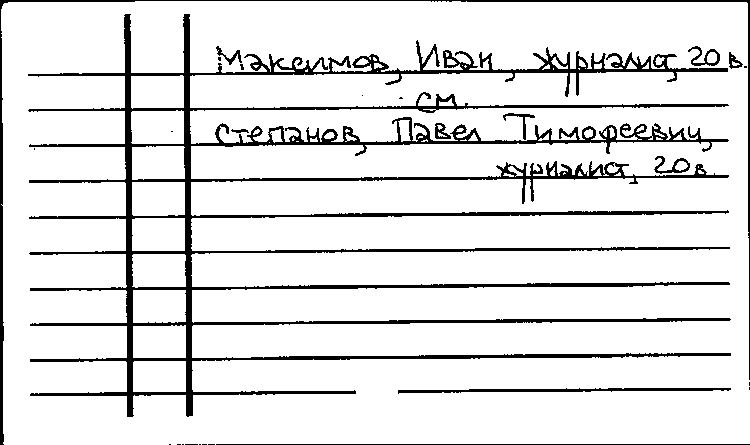 Максимов, Иван, журналист, 20 в.
см.
Степанов, Павел Тимофеевич,
журналист, 20 в